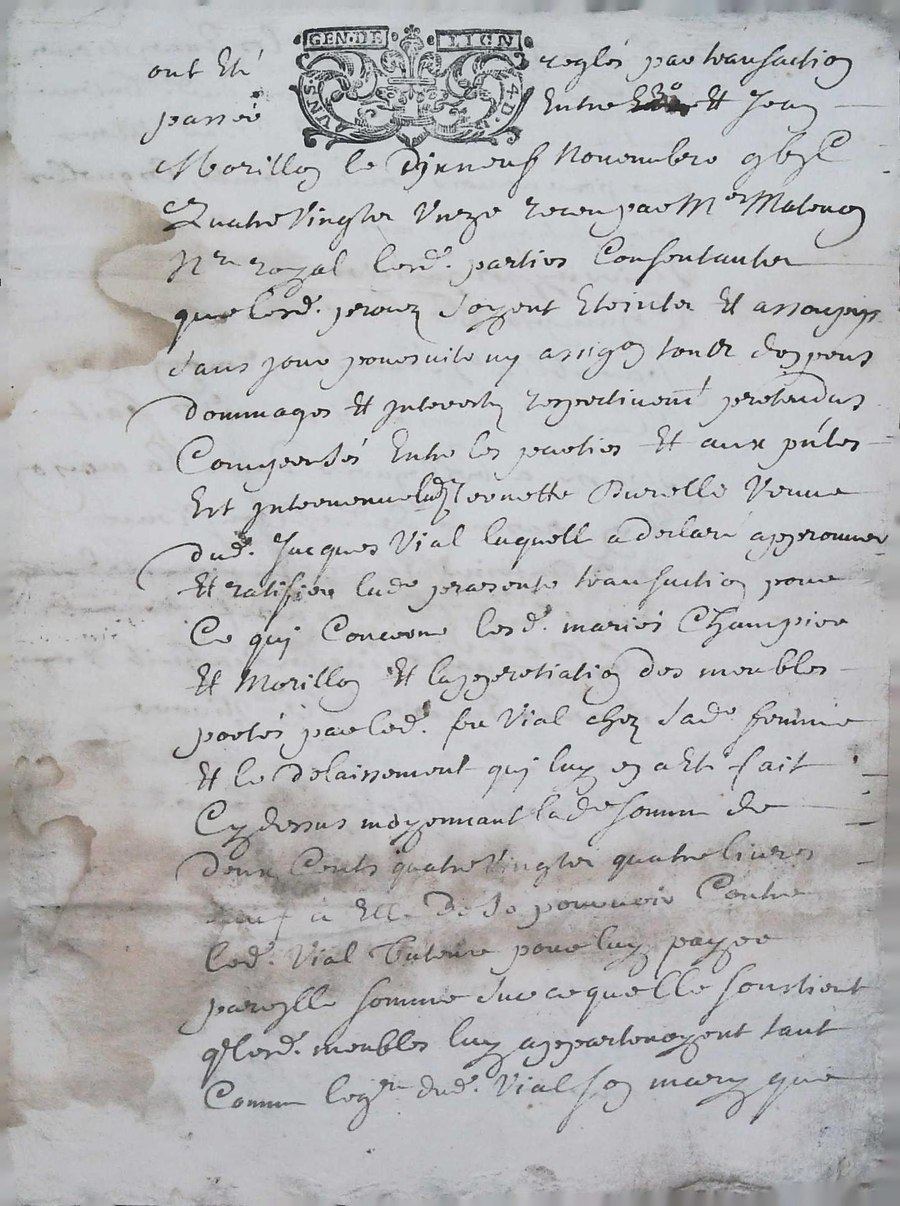 GEN·DE LION
VNS 4·D
ont Eté reglés par transaction
passée Entre Et Jean
Morillon le Dixneuf Novembre
Quatre Vingts Unze receu par Me Matenon
Nre royal lesd. parties Consentantes
que lesd. procez soyent Eteintes Et assoupis
sans pour poursuite ny assigon tous despens
dommages Et interests respectivemt pretendus
Compensés Entre les parties Et aux pntes
Est intervenue lad Pernette Burelle Veuve
dud. Jacques Vial laquelle a declaré approuver
Et ratifier lade presente transaction pour
Ce qui Concerne lesd. mariés Champier
Et Morillon Et lappretiation des meubles
portés par led. feu Vial chez sade femme
Et le delaissement qui luy en a Eté fait
Cy dessus moyennant lade somme de
Deux Cents quatre Vingts quatre livres
sauf a Elle De se pourvoir Contre
led. Vial Tuteur pour luy payer
pareille somme sur ce quelle soustient
q lesd. meubles luy appartenoyent tant
Comme legre dud. Vial son mary que